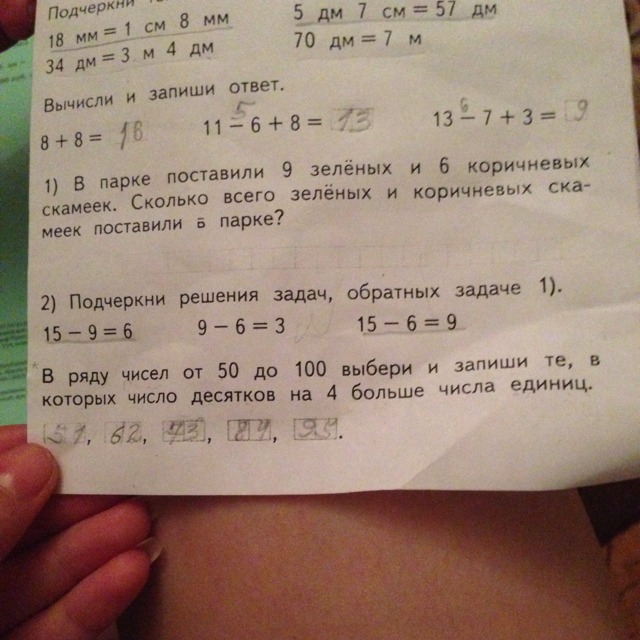 Подчеркни
18 мм = 1 см 8 мм
5 дм 7 см = 57 дм
34 дм = 3 м 4 дм
70 дм = 7 м
Вычисли и запиши ответ.
5
6
8 + 8 = 16
11 – 6 + 8 = 13
13 – 7 + 3 = 9
1) В парке поставили 9 зелёных и 6 коричневых
скамеек. Сколько всего зелёных и коричневых ска-
меек поставили в парке?
2) Подчеркни решения задач, обратных задаче 1).
15 – 9 = 6
9 – 6 = 3
15 – 6 = 9
В ряду чисел от 50 до 100 выбери и запиши те, в
которых число десятков на 4 больше числа единиц.
51, 62, 73, 84, 95.